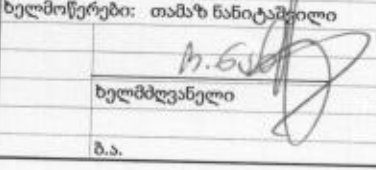 ხელმოწერები: თამაზ ნანიტაშვილი
ხელმძღვანელი
ბ.ა.